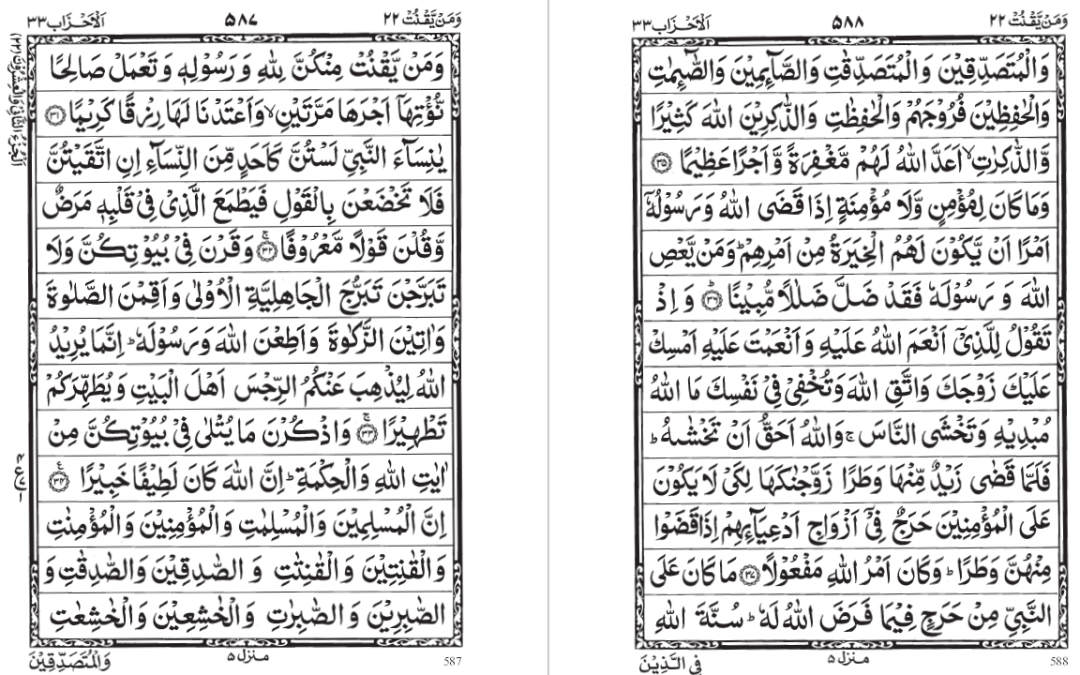 وَمَنۡ يَّقۡنُتۡ ٢٢ ٥٨٧ اَلۡاَحۡزَاب ٣٣
وَمَنۡ يَّقۡنُتۡ مِنۡكُنَّ لِلّٰهِ وَرَسُوۡلِهٖ وَتَعۡمَلۡ صَالِحًا
نُّؤۡتِهَاۤ اَجۡرَهَا مَرَّتَيۡنِۙ وَاَعۡتَدۡنَا لَهَا رِزۡقًا كَرِيۡمًا ﴿٣١﴾
يٰنِسَآءَ النَّبِىِّ لَسۡتُنَّ كَاَحَدٍ مِّنَ النِّسَآءِ اِنِ اتَّقَيۡتُنَّ
فَلَا تَخۡضَعۡنَ بِالۡقَوۡلِ فَيَطۡمَعَ الَّذِىۡ فِىۡ قَلۡبِهٖ مَرَضٌ
وَّقُلۡنَ قَوۡلًا مَّعۡرُوۡفًا ﴿٣٢﴾ۚ وَقَرۡنَ فِىۡ بُيُوۡتِكُنَّ وَلَا
تَبَرَّجۡنَ تَبَرُّجَ الۡجَاهِلِيَّةِ الۡاُوۡلٰى وَاَقِمۡنَ الصَّلٰوةَ
وَاٰتِيۡنَ الزَّكٰوةَ وَاَطِعۡنَ اللّٰهَ وَرَسُوۡلَهٗؕ اِنَّمَا يُرِيۡدُ
اللّٰهُ لِيُذۡهِبَ عَنۡكُمُ الرِّجۡسَ اَهۡلَ الۡبَيۡتِ وَيُطَهِّرَكُمۡ
تَطۡهِيۡرًا ﴿٣٣﴾ۚ وَاذۡكُرۡنَ مَا يُتۡلٰى فِىۡ بُيُوۡتِكُنَّ مِنۡ
اٰيٰتِ اللّٰهِ وَالۡحِكۡمَةِؕ اِنَّ اللّٰهَ كَانَ لَطِيۡفًا خَبِيۡرًا ﴿٣٤﴾
اِنَّ الۡمُسۡلِمِيۡنَ وَالۡمُسۡلِمٰتِ وَالۡمُؤۡمِنِيۡنَ وَالۡمُؤۡمِنٰتِ
وَالۡقٰنِتِيۡنَ وَالۡقٰنِتٰتِ وَالصّٰدِقِيۡنَ وَالصّٰدِقٰتِ وَ
الصّٰبِرِيۡنَ وَالصّٰبِرٰتِ وَالۡخٰشِعِيۡنَ وَالۡخٰشِعٰتِ
وَالۡمُتَصَدِّقِيۡنَ منزل ٥ 587
وَمَنۡ يَّقۡنُتۡ ٢٢ ٥٨٨ اَلۡاَحۡزَاب ٣٣
وَالۡمُتَصَدِّقِيۡنَ وَالۡمُتَصَدِّقٰتِ وَالصَّآٮِٕمِيۡنَ وَالصّٰٓٮِٕمٰتِ
وَالۡحٰفِظِيۡنَ فُرُوۡجَهُمۡ وَالۡحٰفِظٰتِ وَالذّٰكِرِيۡنَ اللّٰهَ كَثِيۡرًا
وَّالذّٰكِرٰتِۙ اَعَدَّ اللّٰهُ لَهُمۡ مَّغۡفِرَةً وَّاَجۡرًا عَظِيۡمًا ﴿٣٥﴾
وَمَا كَانَ لِمُؤۡمِنٍ وَّلَا مُؤۡمِنَةٍ اِذَا قَضَى اللّٰهُ وَرَسُوۡلُهٗۤ
اَمۡرًا اَنۡ يَّكُوۡنَ لَهُمُ الۡخِيَرَةُ مِنۡ اَمۡرِهِمۡؕ وَمَنۡ يَّعۡصِ
اللّٰهَ وَرَسُوۡلَهٗ فَقَدۡ ضَلَّ ضَلٰلًا مُّبِيۡنًا ﴿٣٦﴾ؕ وَاِذۡ
تَقُوۡلُ لِلَّذِىۡۤ اَنۡعَمَ اللّٰهُ عَلَيۡهِ وَاَنۡعَمۡتَ عَلَيۡهِ اَمۡسِكۡ
عَلَيۡكَ زَوۡجَكَ وَاتَّقِ اللّٰهَ وَتُخۡفِىۡ فِىۡ نَفۡسِكَ مَا اللّٰهُ
مُبۡدِيۡهِ وَتَخۡشَى النَّاسَۚ وَاللّٰهُ اَحَقُّ اَنۡ تَخۡشٰٮهُؕ
فَلَمَّا قَضٰى زَيۡدٌ مِّنۡهَا وَطَرًا زَوَّجۡنٰكَهَا لِكَىۡ لَا يَكُوۡنَ
عَلَى الۡمُؤۡمِنِيۡنَ حَرَجٌ فِىۡۤ اَزۡوَاجِ اَدۡعِيَآٮِٕهِمۡ اِذَا قَضَوۡا
مِنۡهُنَّ وَطَرًاؕ وَكَانَ اَمۡرُ اللّٰهِ مَفۡعُوۡلًا ﴿٣٧﴾ مَا كَانَ عَلَى
النَّبِىِّ مِنۡ حَرَجٍ فِيۡمَا فَرَضَ اللّٰهُ لَهٗؕ سُنَّةَ اللّٰهِ
فِى الَّذِيۡنَ منزل ٥ 588